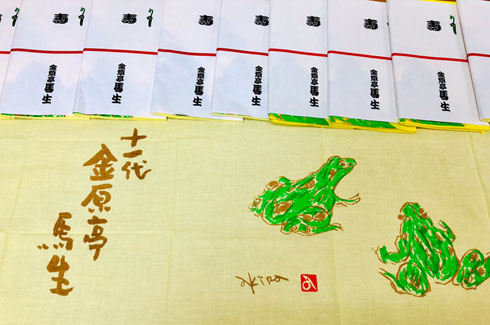 寿
金原亭馬生
寿
金原亭馬生
寿
金原亭馬生
寿
金原亭馬生
寿
金原亭馬生
寿
金原亭馬生
寿
金原亭馬生
十一代
金原亭
馬生
akira